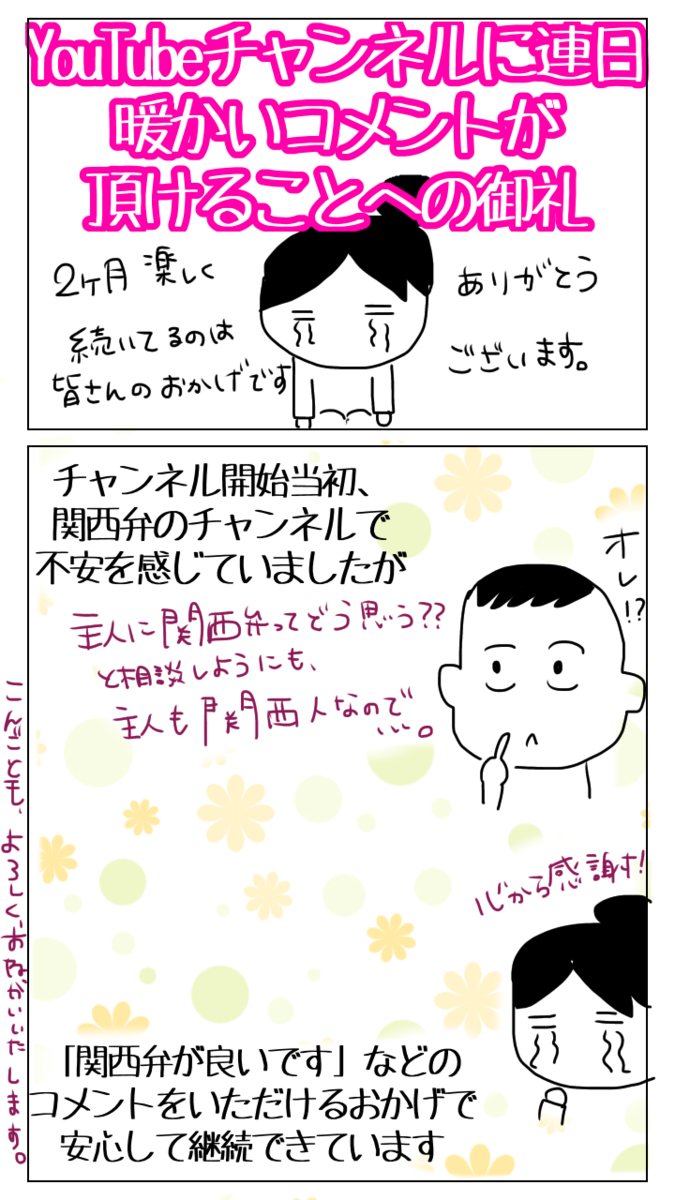 YouTubeチャンネルに連日
暖かいコメントが
頂けることへの御礼
2ヶ月 楽しく
続いてるのは
皆さんのおかげです
ありがとう
ございます。
チャンネル開始当初、
関西弁のチャンネルで
不安を感じていましたが
オレ!?
主人に関西弁ってどう思う??
と相談しようにも、
主人も関西人なので
…。
心から感謝!
「関西弁が良いです」などの
コメントをいただけるおかげで
安心して継続できています
こんごとも、よろしくおねがいいたします。